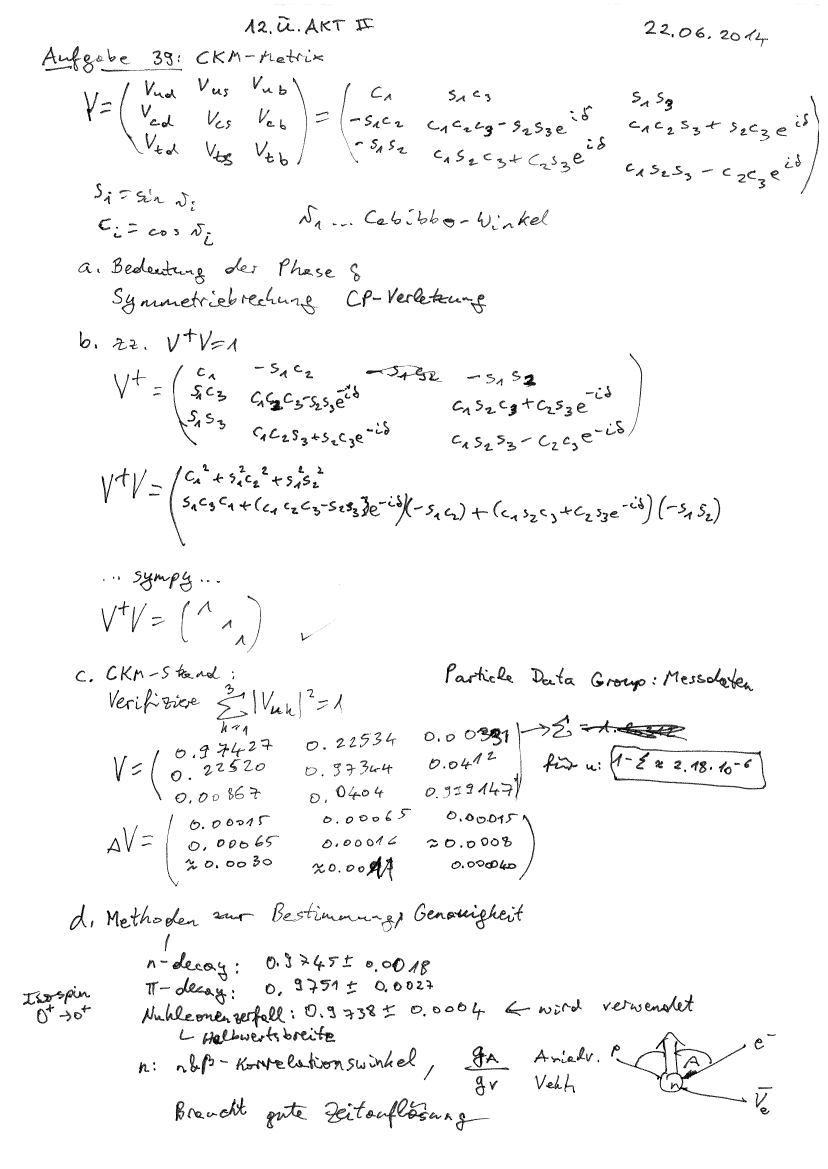 12. Ü. AKT II 22.06.2014
Aufgabe 39: CKM-Matrix
V = ( Vud Vus Vub ) = ( c₁ s₁c₃ s₁s₃ )
( Vcd Vcs Vcb ) ( -s₁c₂ c₁c₂c₃ - s₂s₃e^iδ c₁c₂s₃ + s₂c₃e^iδ )
( Vtd Vts Vtb ) ( -s₁s₂ c₁s₂c₃ + c₂s₃e^iδ c₁s₂s₃ - c₂c₃e^iδ )
sᵢ = sin ϑᵢ
cᵢ = cos ϑᵢ ϑ₁ ... Cabibbo-Winkel
a. Bedeutung der Phase δ
Symmetriebrechung CP-Verletzung
b. zz. V⁺V = 1
V⁺ = ( c₁ -s₁c₂ -s₁s₂ )
( s₁c₃ c₁c₂c₃ - s₂s₃e^-iδ c₁s₂c₃ + c₂s₃e^-iδ )
( s₁s₃ c₁c₂s₃ + s₂c₃e^-iδ c₁s₂s₃ - c₂c₃e^-iδ )
V⁺V = ( c₁² + s₁²c₂² + s₁²s₂²
s₁c₃c₁ + (c₁c₂c₃ - s₂s₃e^-iδ)(-s₁c₂) + (c₁s₂c₃ + c₂s₃e^-iδ)(-s₁s₂)
... sympy ...
V⁺V = ( 1 1 1 ) ✓
c. CKM-Stand: Particle Data Group: Messdaten
Verifiziere Σ_{k=1}^{3} |Vuk|² = 1
V = ( 0.97427 0.22534 0.00351 ) → Σ
( 0.22520 0.97344 0.0412 ) für u: 1-Σ ≈ 2.18·10⁻⁶
( 0.00867 0.0404 0.999147 )
ΔV = ( 0.00015 0.00065 0.00015 )
( 0.00065 0.00016 ≈0.0008 )
( ≈0.0030 ≈0.0011 0.000040 )
d. Methoden zur Bestimmung, Genauigkeit
n-decay: 0.9745 ± 0.0018
π-decay: 0.9751 ± 0.0027
Isospin
0⁺→0⁺ Nukleonenzerfall: 0.9738 ± 0.0004 ← wird verwendet
Halbwertsbreite
n: n&p-Korrelationswinkel, gA/gV Vekt. p A n e⁻ ν̄e
Braucht gute Zeitauflösung